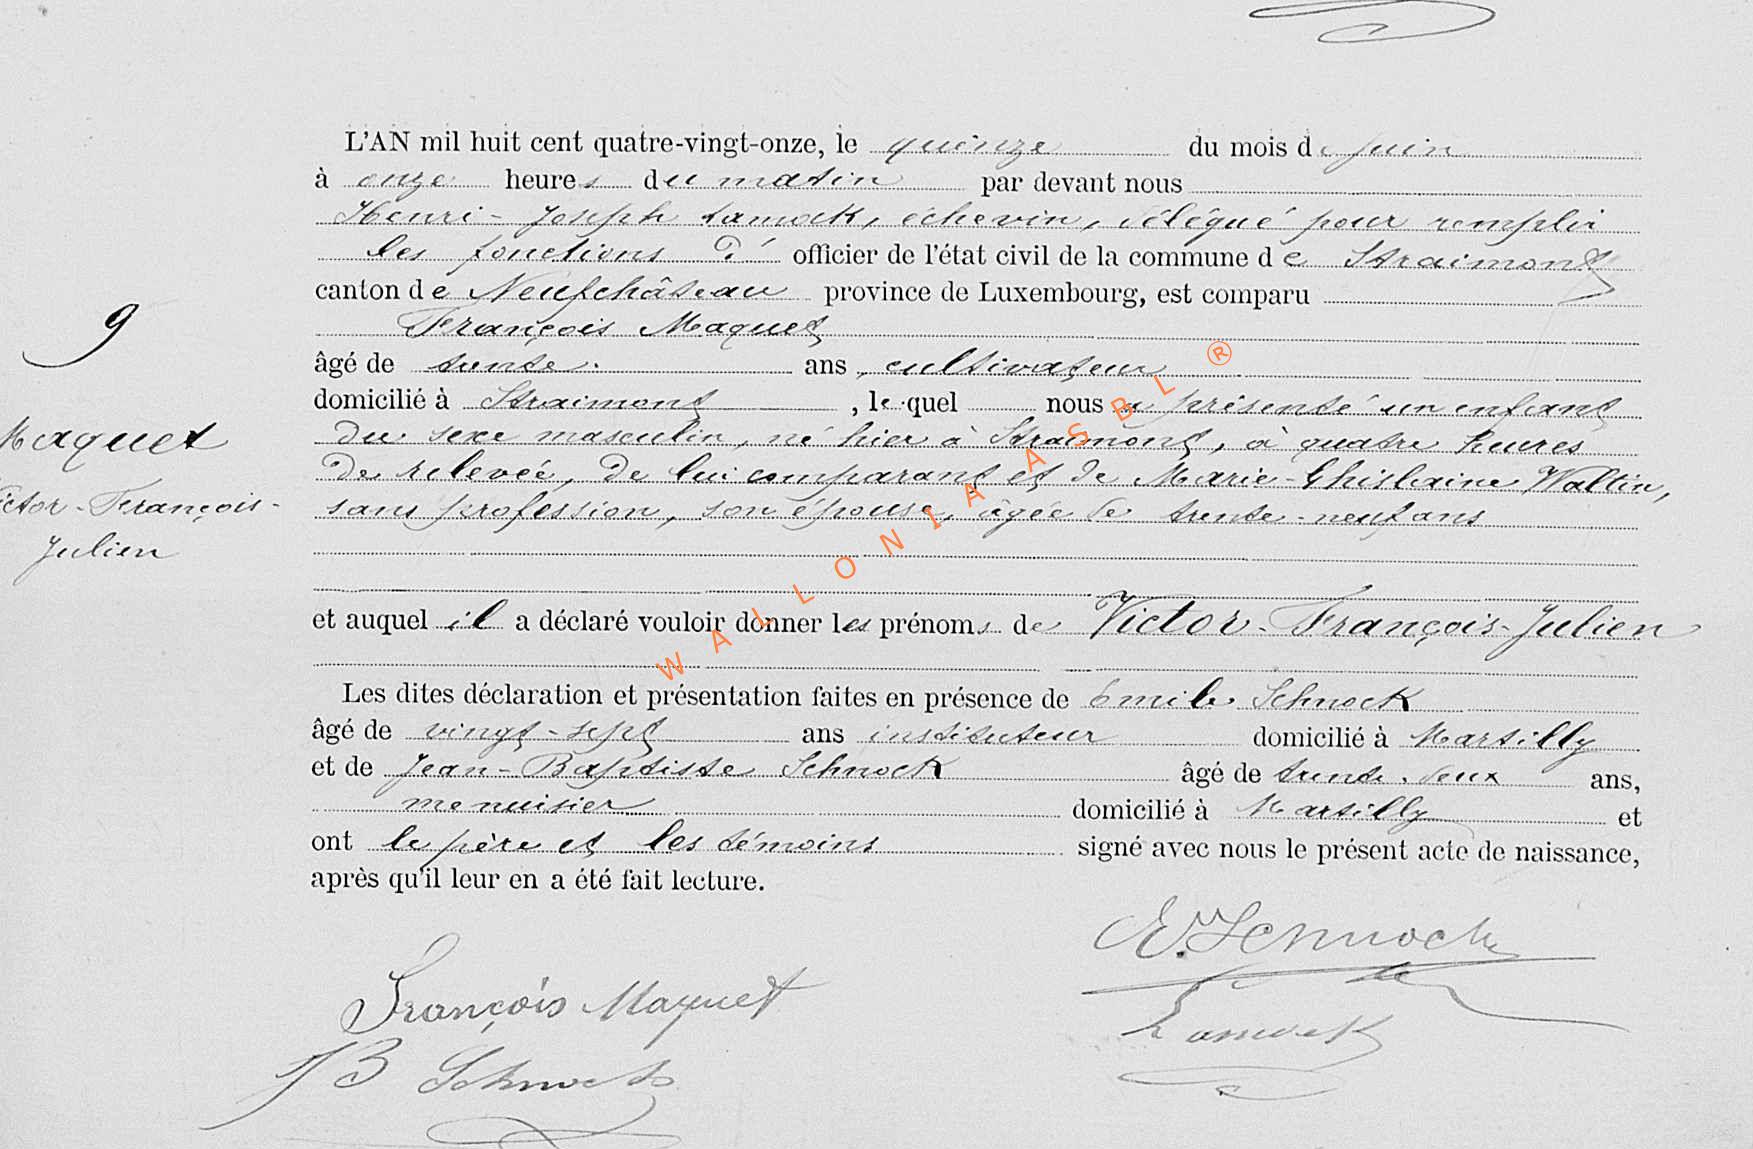 L'AN mil huit cent quatre-vingt-onze, le quinze du mois de juin
à onze heures du matin par devant nous
Henri-Joseph Lamock, échevin, délégué pour remplir
les fonctions d' officier de l'état civil de la commune de Straimont
canton de Neufchâteau province de Luxembourg, est comparu
François Maquet
âgé de trente ans, cultivateur
domicilié à Straimont, lequel nous a présenté un enfant
du sexe masculin, né hier à Straimont, à quatre heures
de relevée, de lui comparant et de Marie-Ghislaine Wallin,
sans profession, son épouse, âgée de trente-neuf ans
et auquel il a déclaré vouloir donner les prénoms de Victor-François-Julien
Les dites déclaration et présentation faites en présence de Emile Schnock
âgé de vingt-sept ans instituteur domicilié à Martilly
et de Jean-Baptiste Schnock âgé de trente-deux ans,
menuisier domicilié à Martilly et
ont le père et les témoins signé avec nous le présent acte de naissance,
après qu'il leur en a été fait lecture.
9
Maquet
ictor-François-
Julien
E. Schnock
François Maquet
Lamock
JB Schnock
WALLONIA ASBL ®